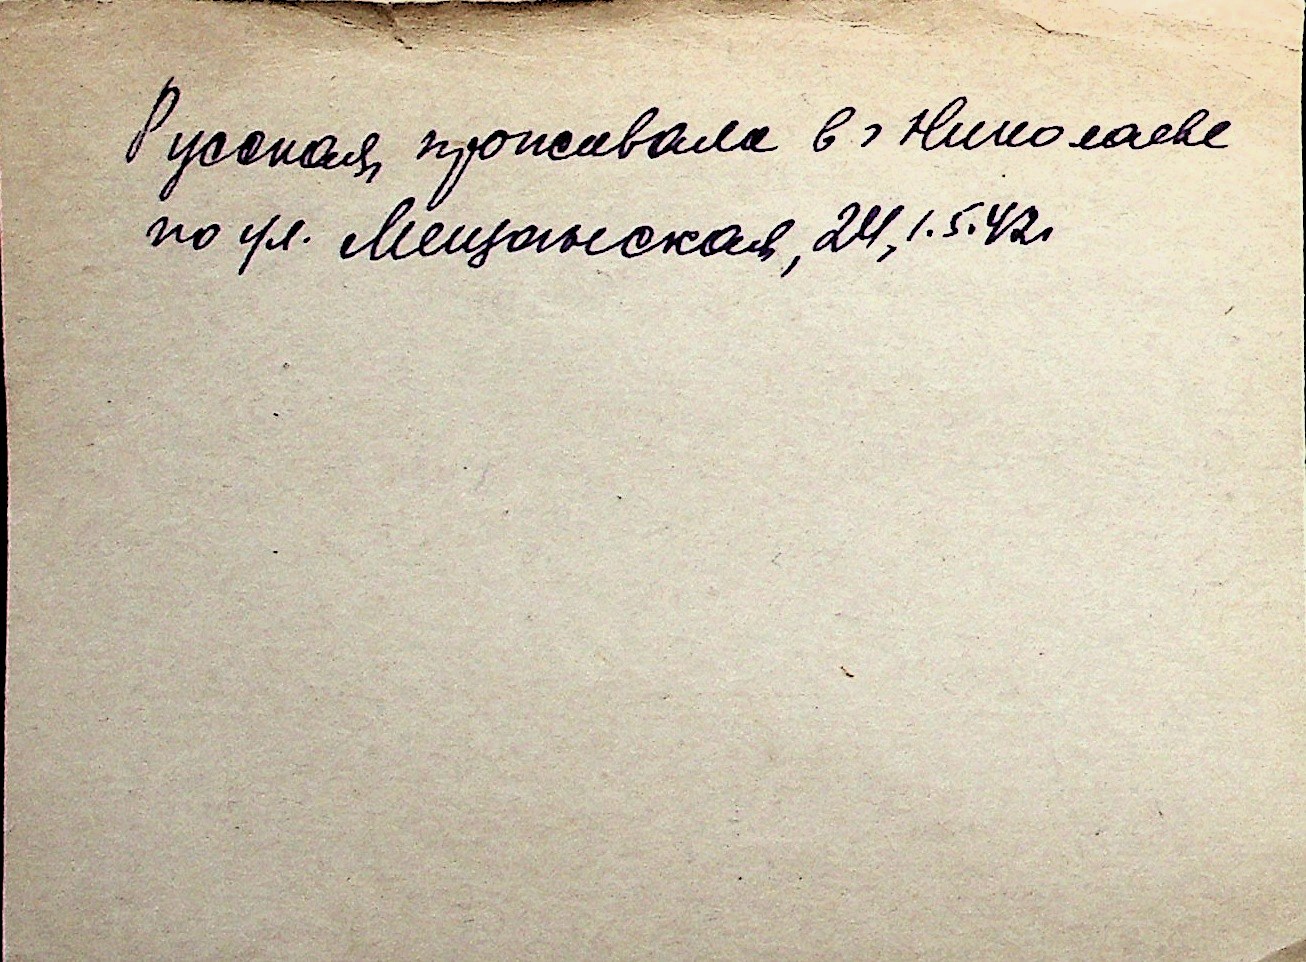 Русская, проживала в г Николаеве
по ул. Мещанская, 24, 1.5.42г